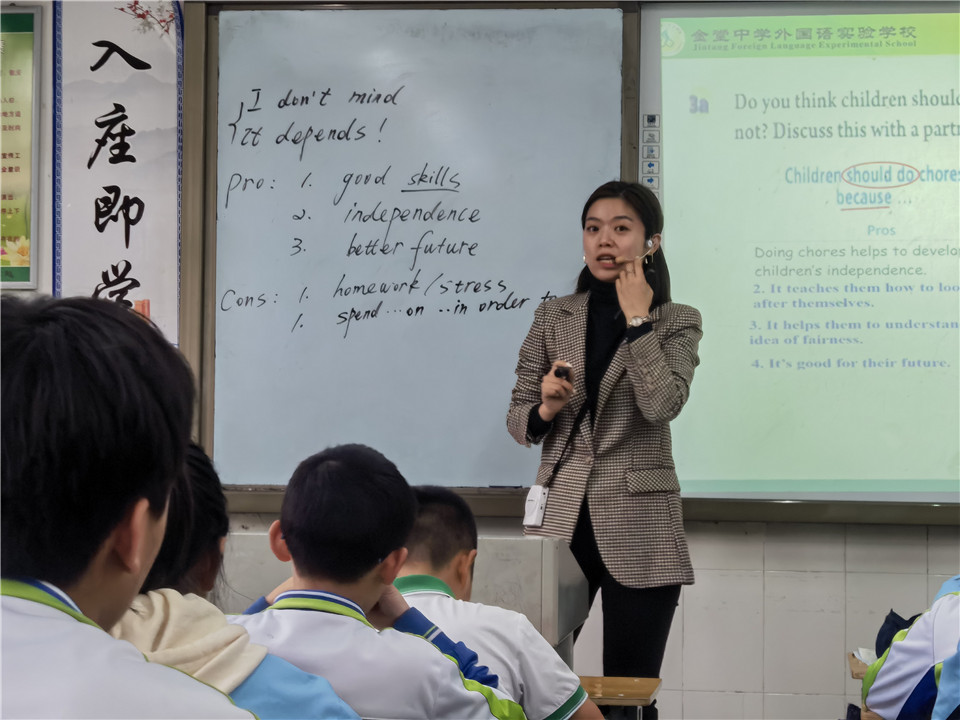 入座即学
I don't mind
It depends!
Pro: 1. good skills
2. independence
3. better future
Cons: 1. homework/stress
1. spend ... on .. in order to
金堂中学外国语实验学校
Jintang Foreign Language Experimental School
3a Do you think children should
not? Discuss this with a partn
Children should do chores
because ...
Pros
Doing chores helps to develop
children's independence.
2. It teaches them how to loo
after themselves.
3. It helps them to understan
idea of fairness.
4. It's good for their future.